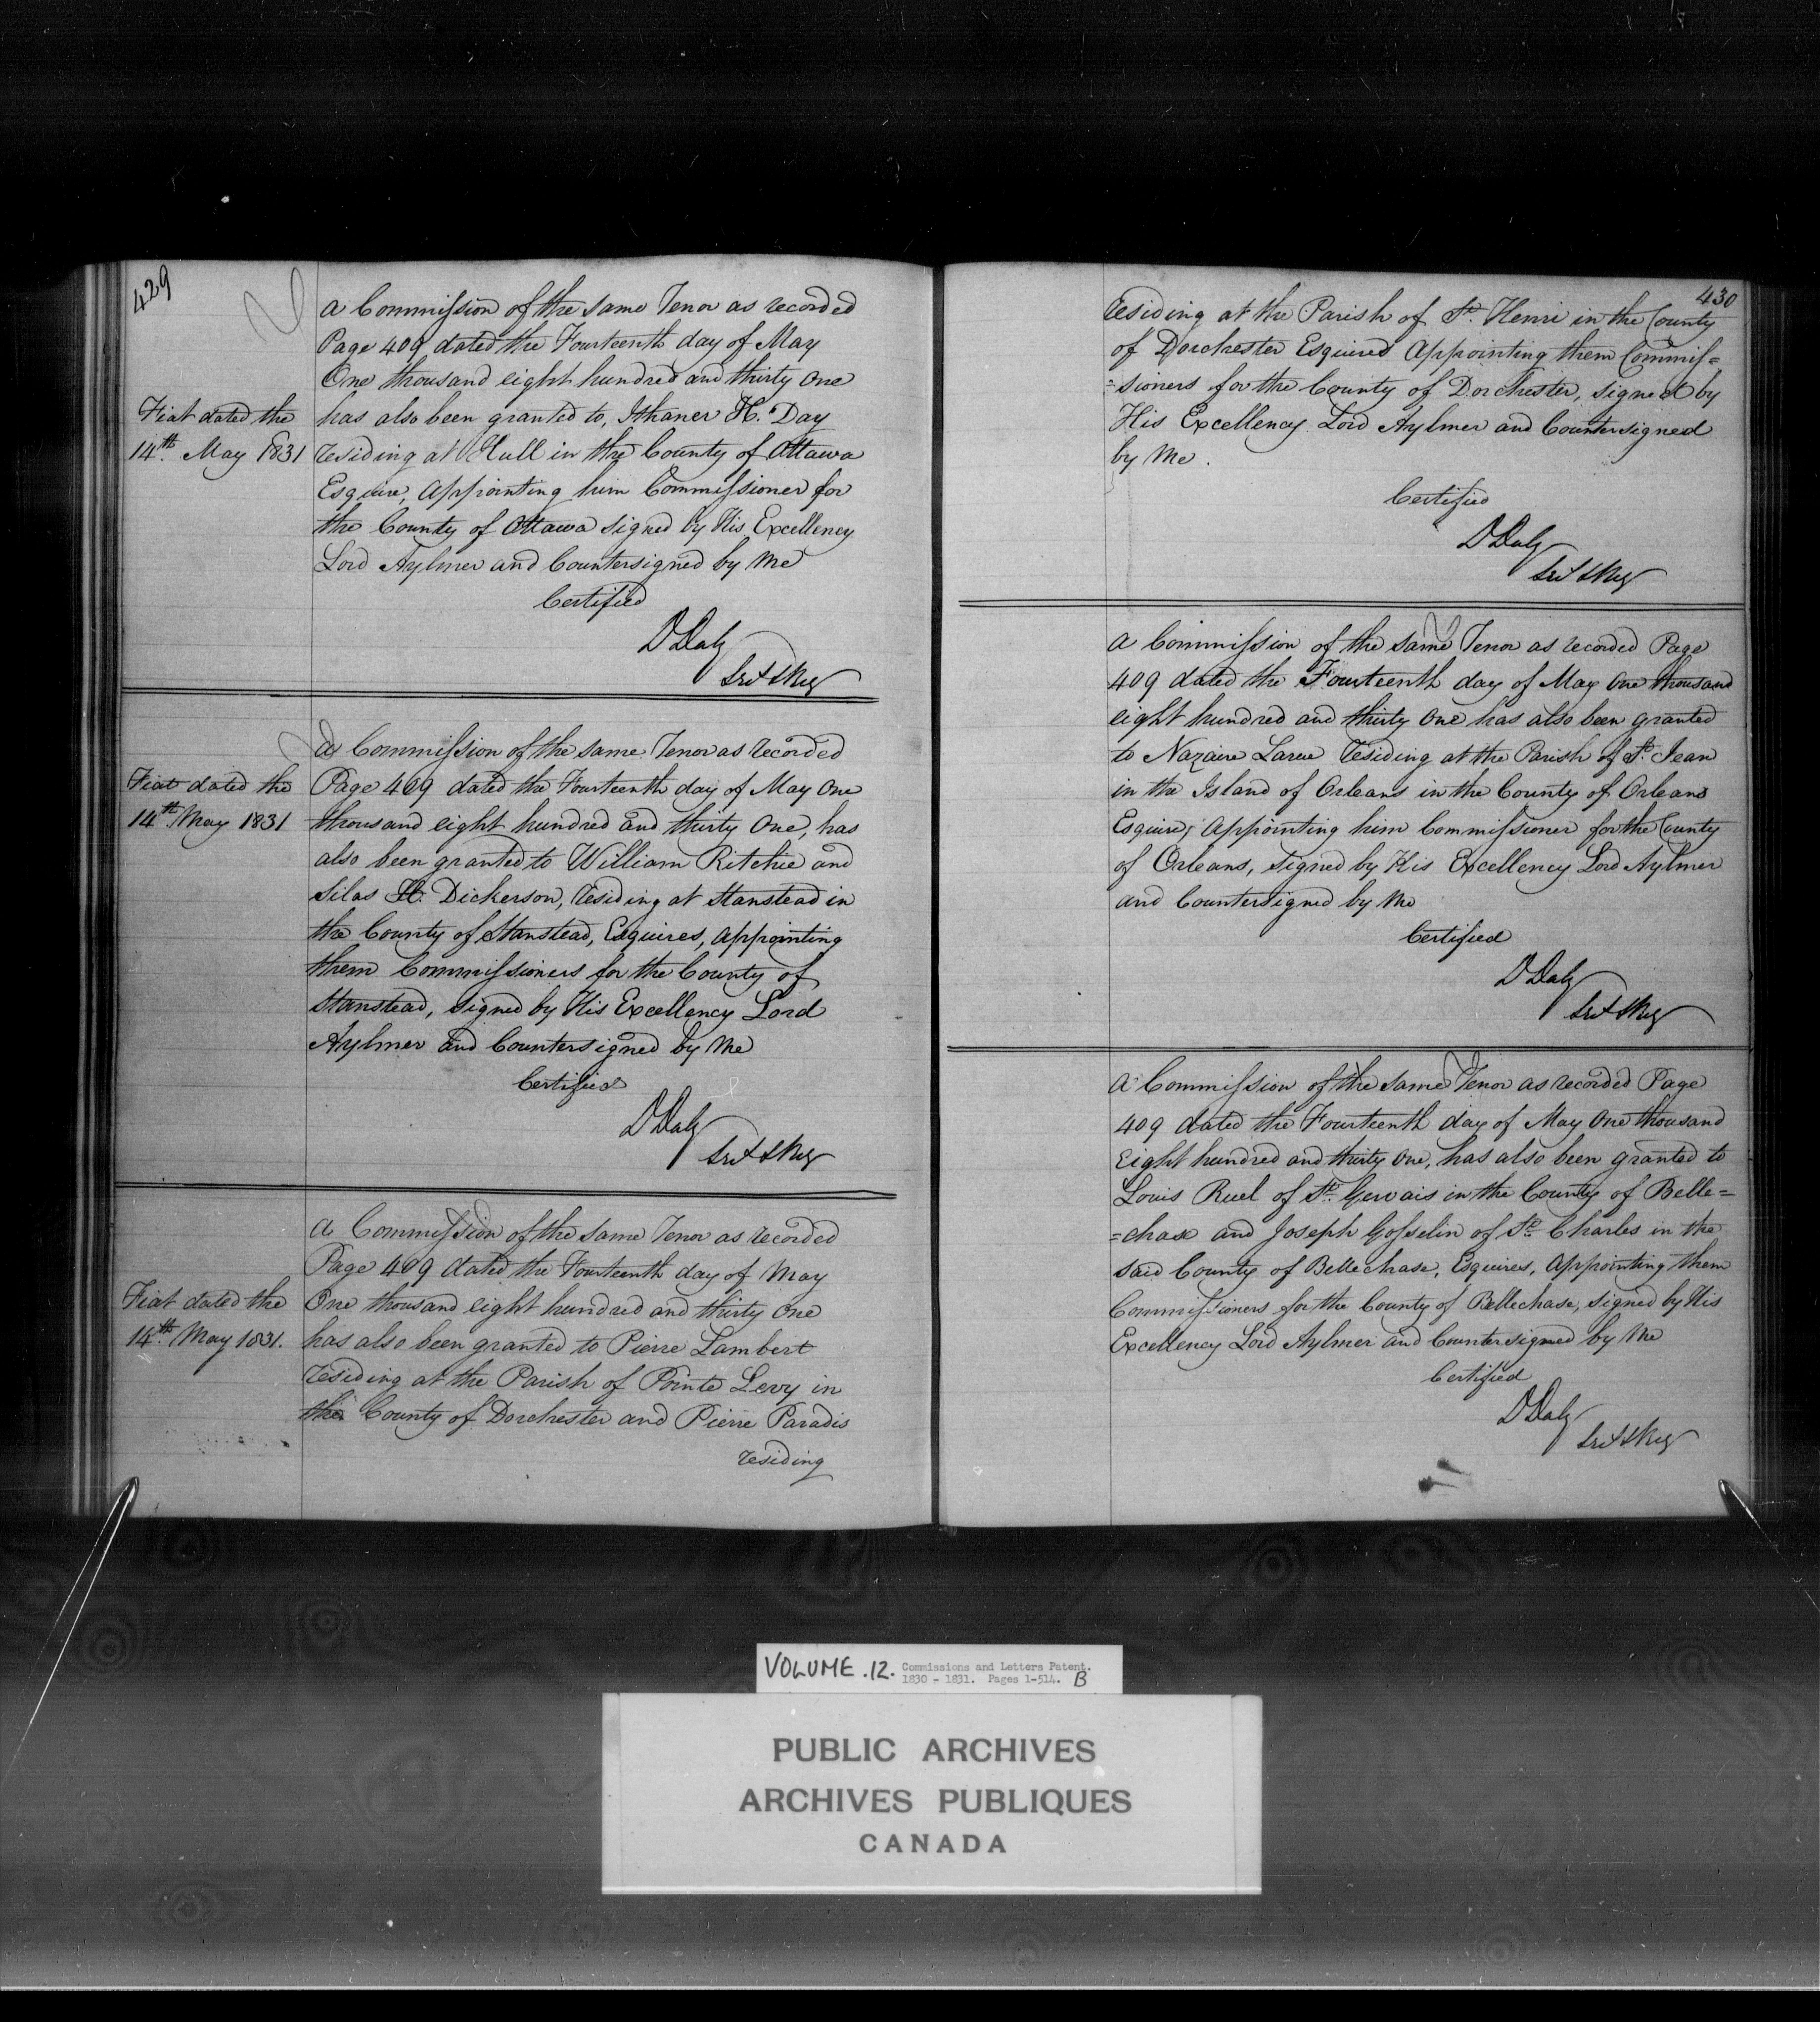 429
A Commission of the same Tenor as recorded
Page 409 dated the Fourteenth day of May
One thousand eight hundred and thirty One
Fiat dated the
14th. May 1831
has also been granted to, Ithaner H. Day
residing at Hull in the County of Ottawa
Esquire, Appointing him Commissioner for
the County of Ottawa signed by His Excellency
Lord Aylmer and Countersigned by Me
Certified
D Daly
Sect & Reg
A Commission of the same Tenor as recorded
Fiat dated the
14th. May 1831
Page 409 dated the Fourteenth day of May One
thousand eight hundred and thirty One, has
also been granted to William Ritchie and
Silas H. Dickerson, residing at Stanstead in
the County of Stanstead, Esquires, Appointing
them Commissioners for the County of
Stanstead, signed by His Excellency Lord
Aylmer and Countersigned by Me
Certified
D Daly
Sect & Reg
A Commission of the same Tenor as recorded
Page 409 dated the Fourteenth day of May
Fiat dated the
14th. May 1831.
One thousand eight hundred and thirty One
has also been granted to Pierre Lambert
residing at the Parish of Pointe Levy in
the County of Dorchester and Pierre Paradis
residing
430
residing at the Parish of St. Henri in the County
of Dorchester Esquires Appointing them Commis=
=sioners for the County of Dorchester, signed by
His Excellency Lord Aylmer and Countersigned
by Me.
Certified
D Daly
Sect & Reg
A Commission of the same Tenor as recorded Page
409 dated the Fourteenth day of May One thousand
eight hundred and thirty One has also been granted
to Nazaire Larue residing at the Parish of St. Jean
in the Island of Orleans in the County of Orleans
Esquire, Appointing him Commissioner for the County
of Orleans, signed by His Excellency Lord Aylmer
and Countersigned by Me
Certified
D Daly
Sect & Reg
A Commission of the same Tenor as recorded Page
409 dated the Fourteenth day of May One thousand
Eight hundred and thirty One, has also been granted to
Louis Ruel of St. Gervais in the County of Belle=
=chase and Joseph Gosselin of St. Charles in the
said County of Bellechase, Esquires, Appointing them
Commissioners for the County of Bellechase, signed by His
Excellency Lord Aylmer and Countersigned by Me
Certified
D Daly
Sect & Reg
VOLUME .12. Commissions and Letters Patent.
1830 - 1831. Pages 1-514. B
PUBLIC ARCHIVES
ARCHIVES PUBLIQUES
CANADA